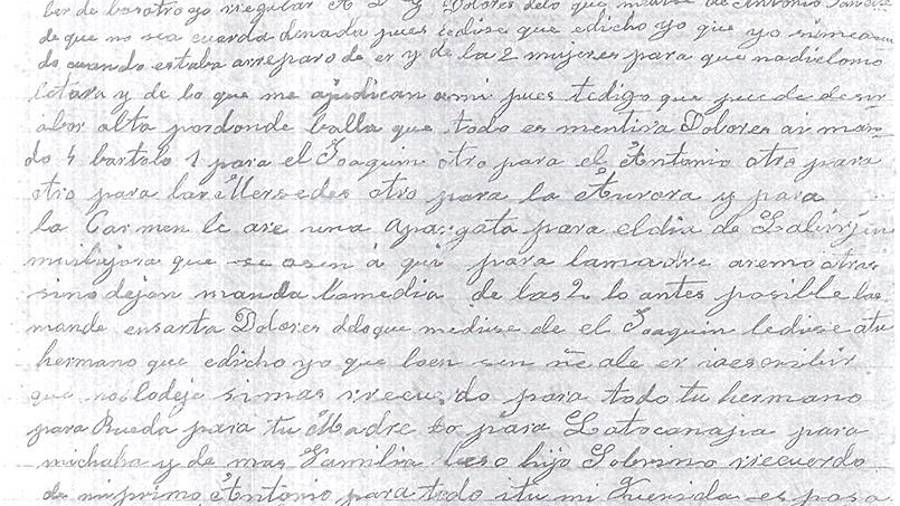 ber de bosotro yo regular A D Y Dolores delo que me dise de Antonio
de que no sea cuerda de nada pues ledise que edicho yo que yo nunca
do cuando estaba arreparo de er y de la 2 mujeres para que nadielomo
lotara y de lo que me ajudican ami pues tedigo que puede desir
abos alta pordonde balla que todo es mentira Dolores ai man
do 4 bartolo 1 para el Joaquin otro para el Antonio otro para
otro para las Mersedes otro para la Aurora y para
la Carmen le are una apargata para eldia de Labirjen
mishijora que se asen á qui para lamadre aremo otras
sino dejan manda lamedia de las 2 lo antes posible las
mande ensarta Dolores deloque medise de el Joaquin ledise atu
hermano que edicho yo que loen
que noslodeje simas rrecuerdo para todo tu hermano
para Rueda para tu Madre to para Latocanajia para
michaba y de mas Familia beso hijo Sobrino recuerdo
de miprimo Antonio para todo itu mi Querida esposa